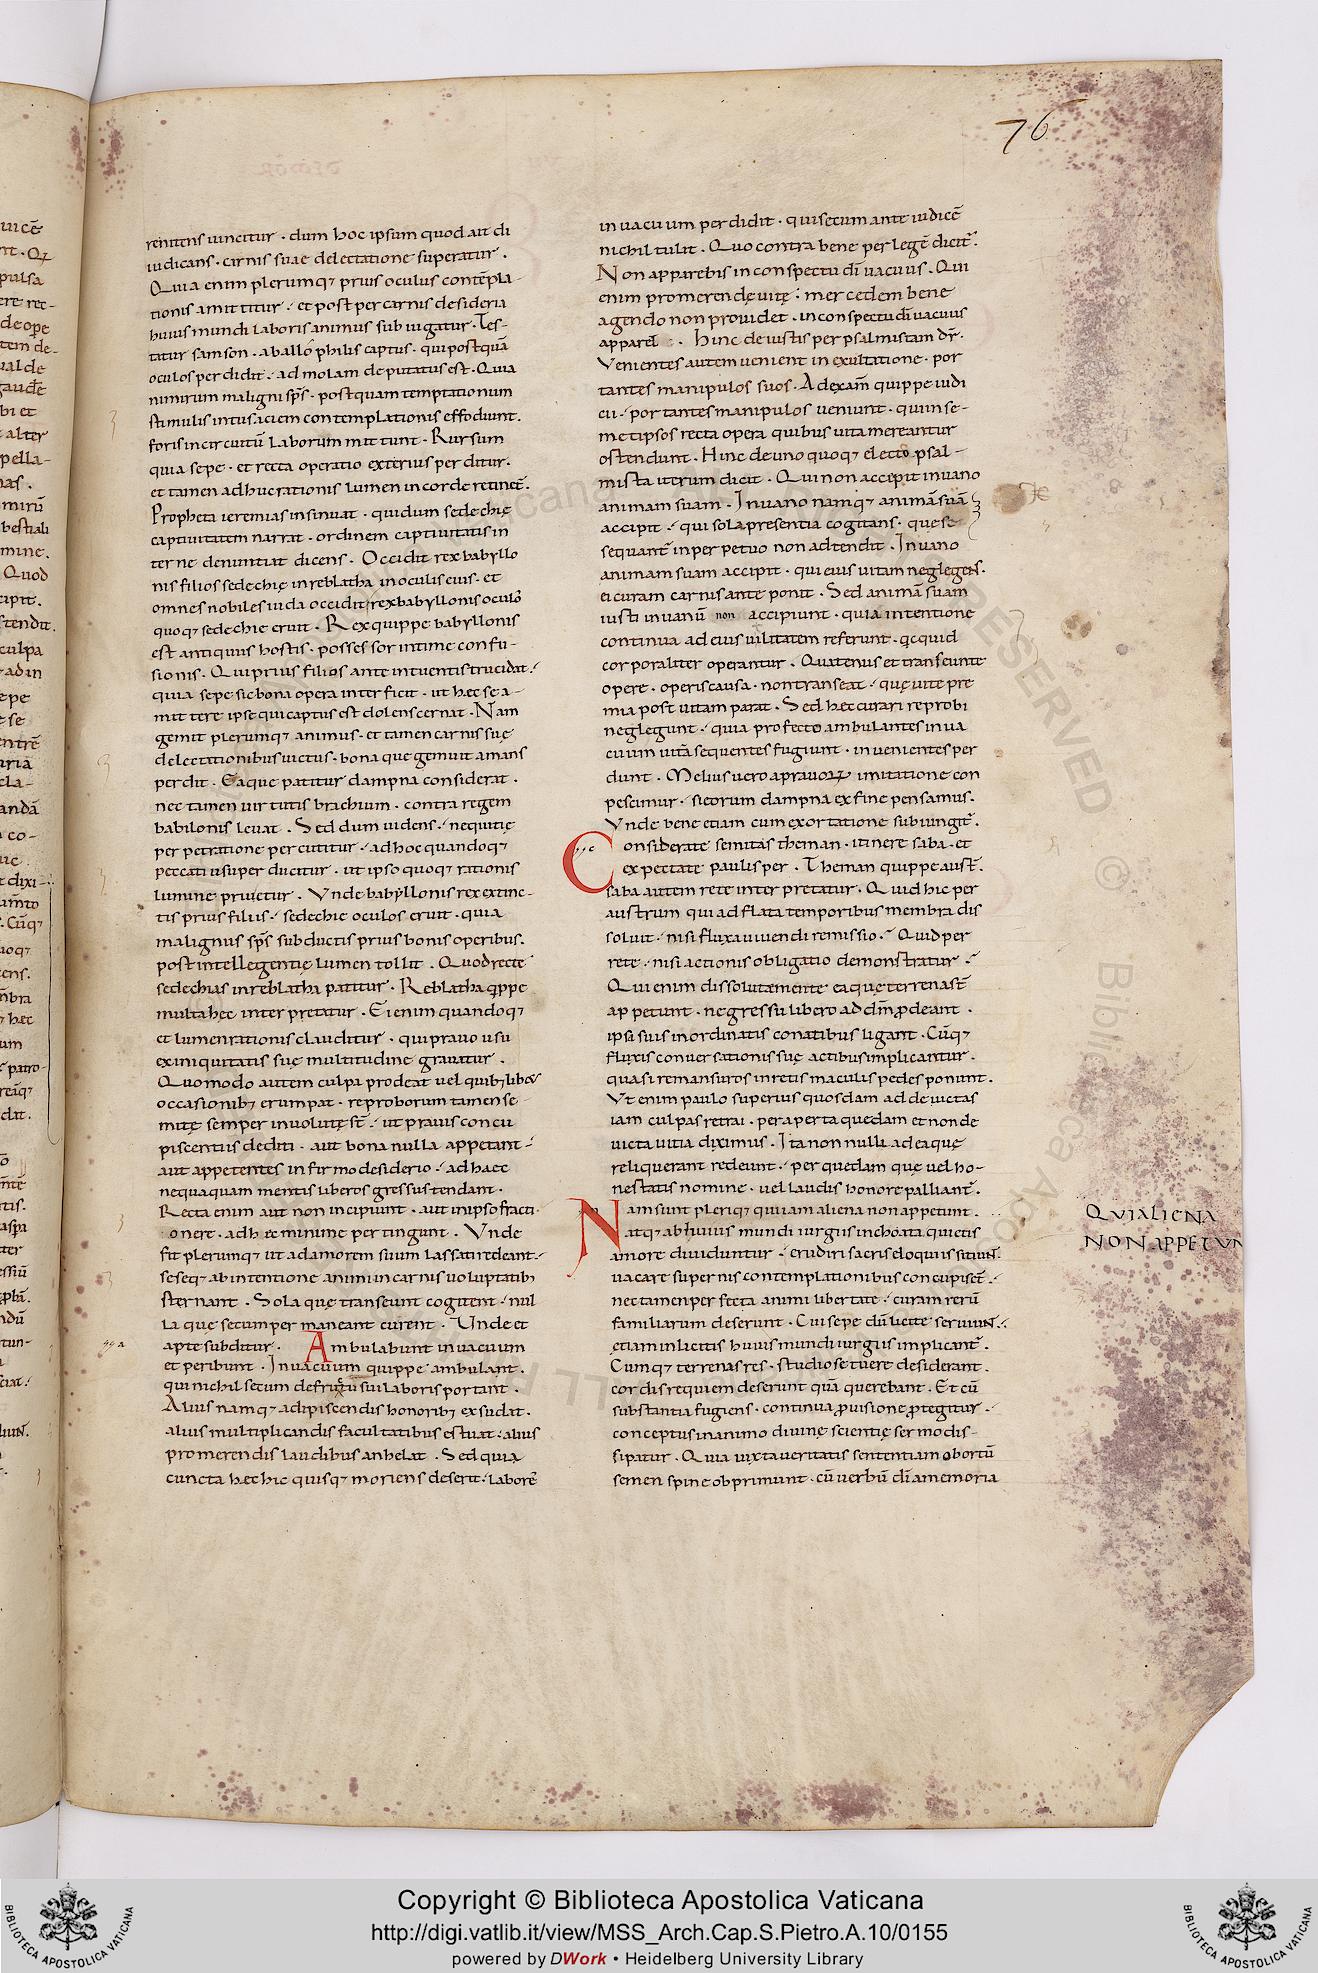 76
renitens vincitur · dum hoc ipsum quod aut di
iudicans · carnis suae delectatione superatur ·
Quia enim plerumq; prius oculus contēpla-
tionis amittitur · et post per carnis desideria
huius mundi laboris animus subiugatur · Tes-
tatur samson · a ballophilis captus · qui postquā
oculos perdidit · ad molam deputatus est · Quia
nimirum maligni sp̄s · postquam temptationum
stimulis intus aciem contemplationis effodiunt ·
foris in circuitū laborum mittunt · Rursum
quia sepe · et recta operatio exterius perditur ·
et tamen adhuc rationis lumen in corde retinet̄ ·
Propheta ieremias insinuat · qui dum sedechię
captivitatem narrat · ordinem captivitatis in
terne denuntiat dicens · Occidit rex babyllo
nis filios sedechię in reblatha in oculis eius · et
omnes nobiles iuda occidit rex babyllonis oculos
quoq; sedechie eruit · Rex quippe babyllonis
est antiquus hostis · possessor intime confu-
sionis · Qui prius filios ante intuentis trucidat ·
quia sepe sic bona opera interficit · ut hec se a-
mittere ipse qui captus est dolens cernat · Nam
gemit plerumq; animus · et tamen carnis suę
delectationibus victus · bona que genuit amans
perdit · Eaque patitur dampna considerat ·
nec tamen virtutis brachium · contra regem
babilonis levat · Sed dum videns · nequitię
perpetratione percutitur · ad hoc quandoq;
peccati usu perducitur · ut ipso quoq; rationis
lumine privetur · Vnde babyllonis rex extinc-
tis prius filiis · sedechie oculos eruit · quia
malignus sp̄s subductis prius bonis operibus ·
post intellegentię lumen tollit · Quod recte
sedechias in reblatha patitur · Reblatha q̄ppe
multa hec interpretatur · Ei enim quandoq;
et lumen rationis clauditur · qui pravo usu
ex iniquitatis suę multitudine gravatur ·
Quomodo autem culpa prodeat vel quib; libet
occasionib; erumpat · reproborum tamen se-
mitę semper involutę st̄ · ut pravis concu
piscentiis dediti · aut bona nulla appetant ·
aut appetentes infirmo desiderio · ad haec
nequaquam mentis liberos gressus tendant ·
Recta enim aut non incipiunt · aut in ipso fracti
onere · adh re minime pertingunt · Vnde
fit plerumq; ut ad amorem suum lassati redeant ·
seseq; ab intentione animi in carnis voluptatib;
sternant · Sola quę transeunt cogitent · nul
la quę secum permaneant curent · Unde et
apte subditur · Ambulabunt in vacuum
et peribunt · In vacuum quippe ambulant ·
qui nichil secum de fructu sui laboris portant ·
Alius namq; adipiscendis honorib; exsudat ·
alius multiplicandis facultatibus estuat · alius
promerendis laudibus anhelat · Sed quia
cuncta hec hic quisq; moriens deserit · laborē
in vacuum perdidit · qui secum ante iudicē
nichil tulit · Quo contra bene per legē dicit̄ ·
Non apparebis in conspectu dī vacuus · Qui
enim promerendę vitę · mercedem bene
agendo non providet · in conspectu dī vacuus
apparet · Hinc de iustis per psalmistam dr̄ ·
Venientes autem venient in exultatione · por
tantes manipulos suos · Ad exam̄ quippe iudi
cii · portantes manipulos veniunt · qui in se-
metipsos recta opera quibus vita mereantur
ostendunt · Hinc de uno quoq; electo psal-
mista iterum dicit · Qui non accepit in vano
animam suam · In vano namq; animā suā
accipit · qui sola presentia cogitans · que se-
sequant̄ in perpetuo non adtendit · In vano
animam suam accipit · qui eius vitam neglegens ·
ei curam carnis anteponit · Sed animā suam
iusti in vanū non accipiunt · quia intentione
continua ad eius utilitatem referunt · qcquid
corporaliter operantur · Quatenus et transeunte
opere · operis causa · non transeat · quę vite pre
mia post vitam parat · Sed hec curari reprobi
neglegunt · quia profecto ambulantes in va
cuum vitā sequentes fugiunt · invenientes per
dunt · Melius vero a pravoꝝ imitatione con
pescimur · si eorum dampna ex fine pensamus ·
Vnde bene etiam cum exortatione subiungit̄ ·
Considerate semitas theman · itinere saba · et
expectate paulisper · Theman quippe aust̄ ·
saba autem rete interpretatur · Quid hic per
austrum qui adflata temporibus membra dis
solvit · nisi fluxa vivendi remissio · Quid per
rete · nisi actionis obligatio demonstratur ·
Qui enim dissoluta mente ea que terrena st̄
appetunt · ne gressu libero ad dm̄ p̄deant ·
ipsi suis inordinatis conatibus ligant · Cūq;
fluxis conversationis suę actibus implicantur ·
quasi remansuros in retis maculis pedes ponunt ·
Vt enim paulo superius quosdam ad devictas
iam culpas retrai · per aperta quedam et non de
victa vitia diximus · Ita non nulli ad ea quę
reliquerant redeunt · per quedam quę vel ho-
nestatis nomine · vel laudis honore palliant̄ ·
Nam sunt pleriq; qui iam aliena non appetunt ·
Atq; ab huius mundi iurgiis inchoata quietis
amore dividuntur · erudiri sacris eloquiis sitiunt ·
vacare supernis contemplationibus concupisct̄ ·
nec tamen perfecta animi libertate · curam rerū
familiarum deserunt · Cui sepe dū licite serviunt ·
etiam inlicitis huius mundi iurgiis implicant̄ ·
Cumq; terrenas res · studiose tuere desiderant ·
cordis requiem deserunt quā querebant · Et cū
substantia fugiens · continua p̄visione p̄tegitur ·
conceptus in animo divinę scientię sermo dis-
sipatur · Quia iuxta veritatis sententiam obortū
semen spine obprimunt · cū verbū dī a memoria
QVI ALIENA
NON APPETVN
Copyright © Biblioteca Apostolica Vaticana
http://digi.vatlib.it/view/MSS_Arch.Cap.S.Pietro.A.10/0155
powered by DWork • Heidelberg University Library
BIBLIOTECA APOSTOLICA VATICANA
BIBLIOTECA APOSTOLICA VATICANA